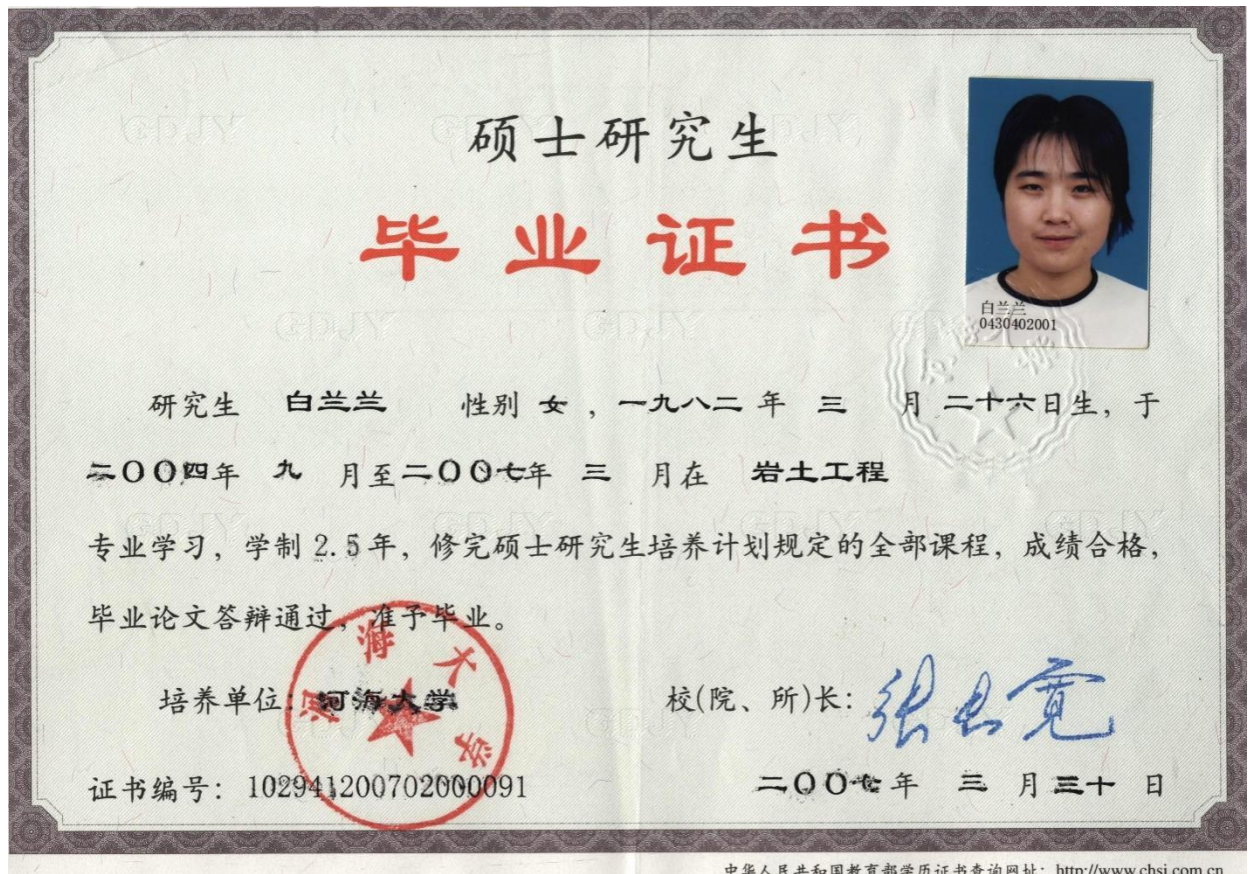 硕士研究生
毕业证书
白兰兰
0430402001
研究生 白兰兰 性别 女 ，一九八二 年 三 月 二十六日生，于
二〇〇四年 九 月至二〇〇七年 三 月在 岩土工程
专业学习，学制 2.5 年，修完硕士研究生培养计划规定的全部课程，成绩合格，
毕业论文答辩通过，准予毕业。
河海大学
培养单位：河海大学 校(院、所)长：张长宽
证书编号：102941200702000091 二〇〇七年 三 月 三十 日
中华人民共和国教育部学历证书查询网址：http://www.chsi.com.cn